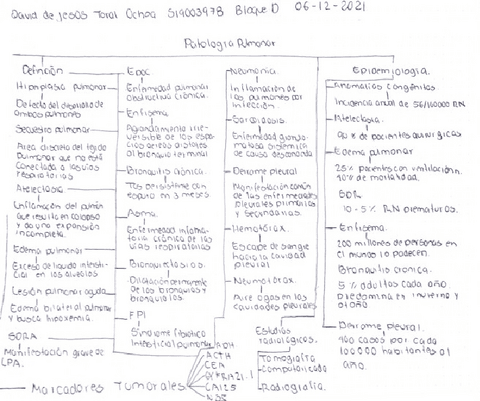 David de Jesús Toral Ochoa 519003978 Bloque D 06-12-2021
Patología Pulmonar
Definición
Hipoplasia pulmonar
Defecto del desarrollo de
ambos pulmones
Secuestro pulmonar
Área discreta del tejido
pulmonar que no está
conectada a las vías
respiratorias
Atelectasia
Inflamación del pulmón
que resulta en colapso
y da una expansión
incompleta.
Edema pulmonar
Exceso de líquido intersti-
cial en los alveolos
Lesión pulmonar aguda
Edema bilateral pulmonar
y busca hipoxemia.
SDRA
Manifestación grave de
LPA.
Epoc
Enfermedad pulmonar
obstructiva crónica.
Enfisema
irre-
versible de los espa-
cios aéreos distales
al bronquio terminal
Bronquitis crónica.
Tos persistente con
esputo en 3 meses
Asma.
Enfermedad inflama-
toria crónica de las
vías respiratorias
Bronquiectasias.
Dilatación permanente
de los bronquios y
bronquiolos.
FPI
Síndrome fibrótico
intersticial pulmonar
Neumonía.
Inflamación de
los pulmones por
infección.
Sarcoidosis
Enfermedad granulo-
matosa sistémica
de causa desconocida
Derrame pleural
Manifestación común
de las enfermedades
pleurales primarias
y secundarias.
Hemotórax.
Escape de sangre
hacia la cavidad
pleural
Neumotórax.
Aire o gas en las
cavidades pleurales
Estudios
radiológicos.
Tomografía
computarizada
Radiografía.
Epidemiología.
Anomalías congénitas
Incidencia anual de 56/100000 RN
Atelectasia.
90% de pacientes quirúrgicos
Edema pulmonar
25% pacientes con ventilación.
90% de mortalidad.
SDR
10-5% RN prematuros.
Enfisema.
200 millones de personas en
el mundo lo padecen.
Bronquitis crónica.
5% adultos cada año
predomina en invierno y
otoño
Derrame pleural.
400 casos por cada
100000 habitantes al
año.
Marcadores Tumorales
ADH
ACTH
CEA
CYFRA21.1
CA125
NSE